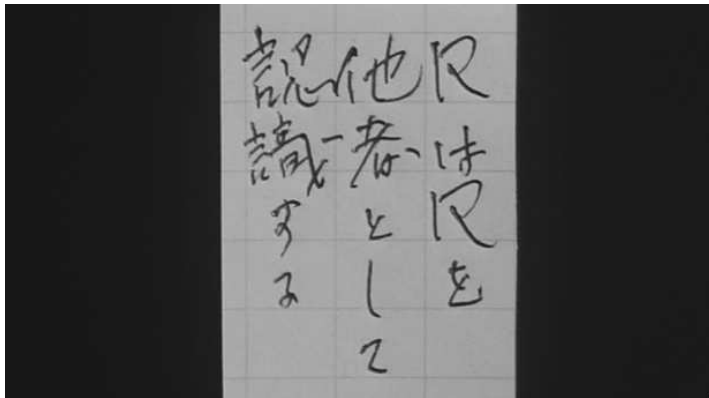 RはRを
他者として
認識する